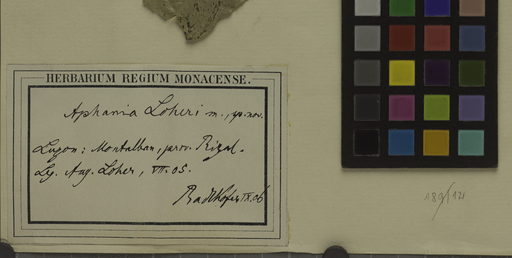 HERBARIUM REGIUM MONACENSE.
Aphania Loheri m., sp. nov.
Luzon: Montalban, prov. Rizal.
Leg. Aug. Loher, VII. 05.
Radlkofer IX. 06
189/121